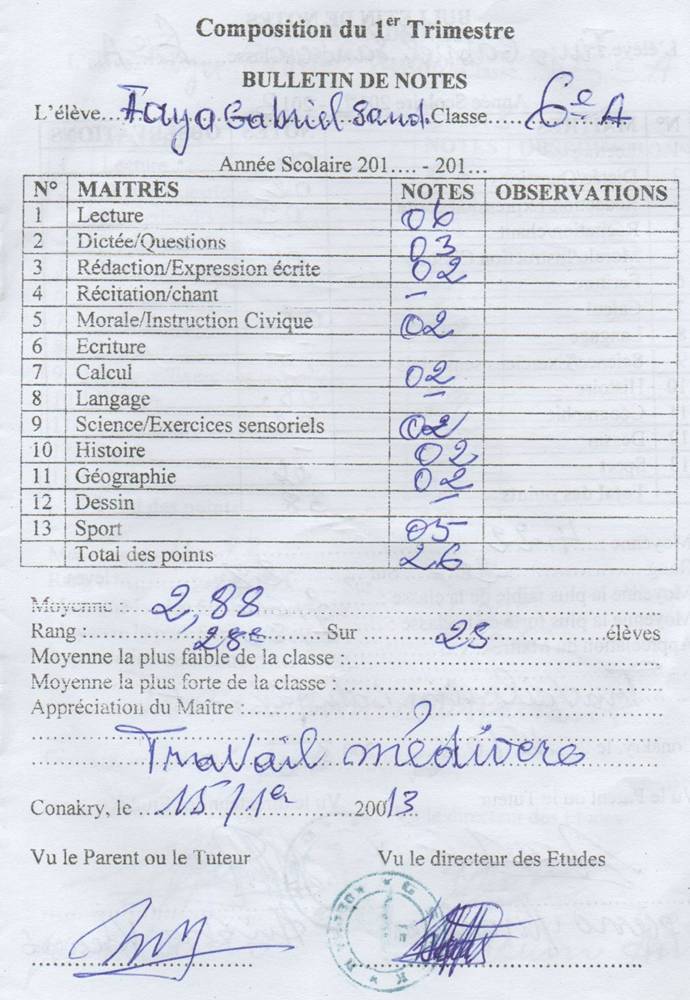 Composition du 1er Trimestre
BULLETIN DE NOTES
L'élève....Faya Gabriel Sand.Classe....6e A
Année Scolaire 201.... - 201...
N° MAITRES NOTES OBSERVATIONS
1 Lecture 06
2 Dictée/Questions 03
3 Rédaction/Expression écrite 02
4 Récitation/chant –
5 Morale/Instruction Civique 02
6 Ecriture
7 Calcul 02
8 Langage –
9 Science/Exercices sensoriels 02
10 Histoire 02
11 Géographie 02
12 Dessin –
13 Sport 05
Total des points 26
Moyenne : 2,88
Rang : 28e Sur 23 élèves
Moyenne la plus faible de la classe :
Moyenne la plus forte de la classe :
Appréciation du Maître :
Travail médivere
Conakry, le 15/1er 20013
Vu le Parent ou le Tuteur Vu le directeur des Etudes